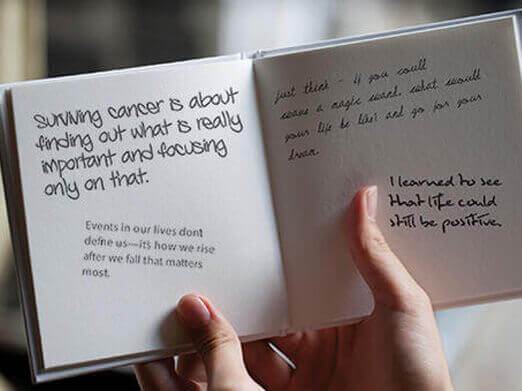 Surviving cancer is about
finding out what is really
important and focusing
only on that.
Events in our lives dont
define us—its how we rise
after we fall that matters
most.
just think - if you could
wave a magic wand, what would
your life be like? and go for your
dream
I learned to see
that life could
still be positive.